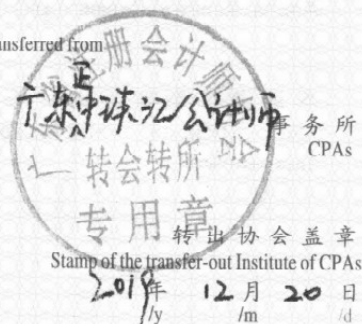 ansferred from
广东省注册会计师协会
广东正中珠江会计师事务所
CPAs
转会转所
专用章
转出协会盖章
Stamp of the transfer-out Institute of CPAs
2019年 12月 20日
/y /m /d